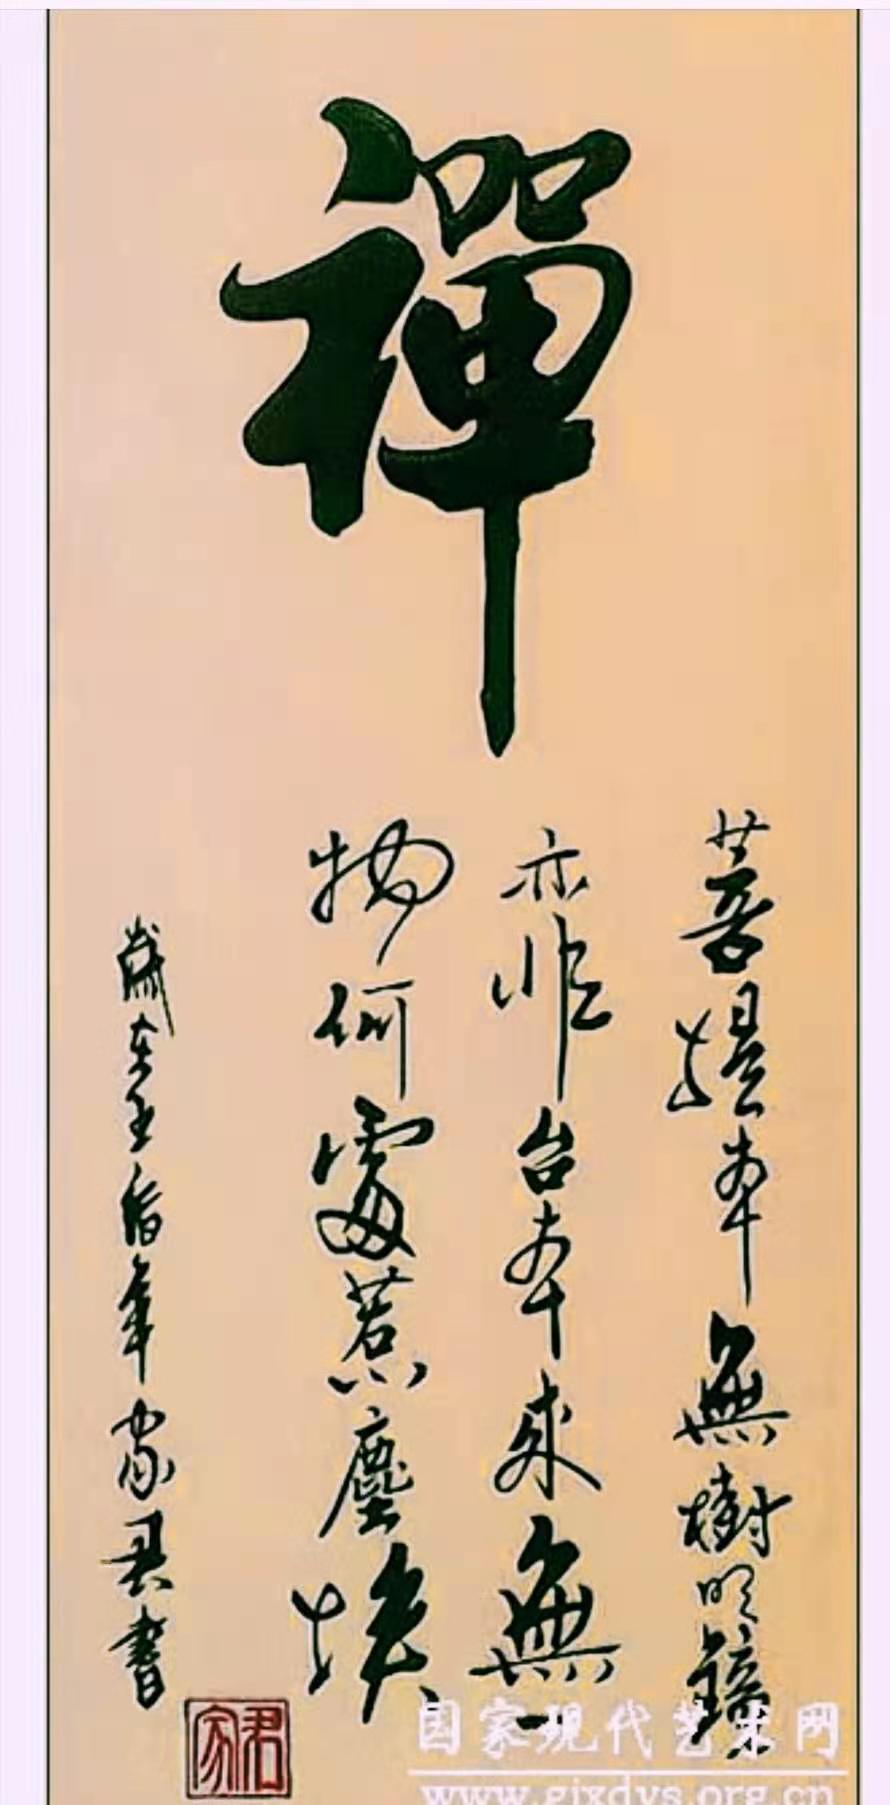 禪
菩提本無樹明鏡
亦非台本來無一
物何處惹塵埃
歲在壬年家君書
君家
国家现代艺术网
www.gjxdys.org.cn